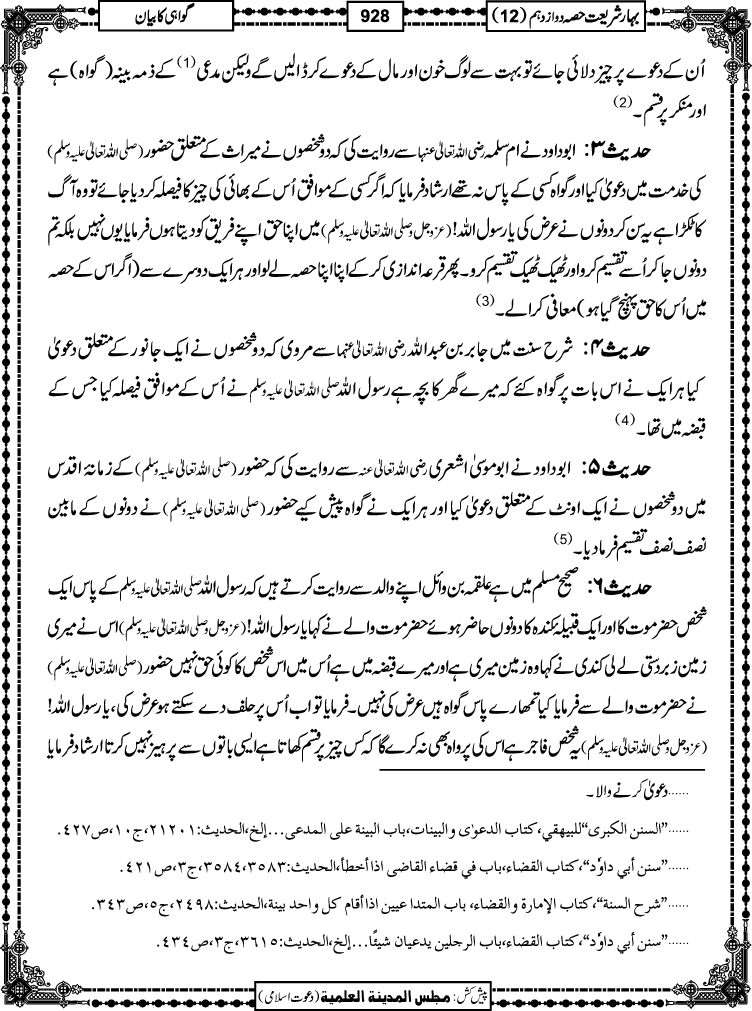 بہارِ شریعت حصہ دوازدہم (12)
928
گواہی کا بیان
اُن کے دعوے پر چیز دلائی جائے تو بہت سے لوگ خون اور مال کے دعوے کر ڈالیں گے ولیکن مدعی (1) کے ذمہ بینہ (گواہ) ہے
اور منکر پر قسم۔ (2)
حدیث ۳: ابوداود نے ام سلمہ رضی اللہ تعالیٰ عنہا سے روایت کی کہ دو شخصوں نے میراث کے متعلق حضور (صلی اللہ تعالیٰ علیہ وسلم)
کی خدمت میں دعویٰ کیا اور گواہ کسی کے پاس نہ تھے ارشاد فرمایا کہ اگر کسی کے موافق اُس کے بھائی کی چیز کا فیصلہ کردیا جائے تو وہ آگ
کا ٹکڑا ہے یہ سن کر دونوں نے عرض کی یارسول اللہ! (عزوجل وصلی اللہ تعالیٰ علیہ وسلم) میں اپنا حق اپنے فریق کو دیتا ہوں فرمایا یوں نہیں بلکہ تم
دونوں جا کر اُسے تقسیم کرو اور ٹھیک ٹھیک تقسیم کرو۔ پھر قرعہ اندازی کر کے اپنا اپنا حصہ لے لو اور ہر ایک دوسرے سے (اگر اس کے حصہ
میں اُس کا حق پہنچ گیا ہو) معافی کرالے۔ (3)
حدیث ۴: شرح سنت میں جابر بن عبداللہ رضی اللہ تعالیٰ عنہما سے مروی کہ دو شخصوں نے ایک جانور کے متعلق دعویٰ
کیا ہر ایک نے اس بات پر گواہ کئے کہ میرے گھر کا بچہ ہے رسول اللہ صلی اللہ تعالیٰ علیہ وسلم نے اُس کے موافق فیصلہ کیا جس کے
قبضہ میں تھا۔ (4)
حدیث ۵: ابوداود نے ابوموسیٰ اشعری رضی اللہ تعالیٰ عنہ سے روایت کی کہ حضور (صلی اللہ تعالیٰ علیہ وسلم) کے زمانۂ اقدس
میں دو شخصوں نے ایک اونٹ کے متعلق دعویٰ کیا اور ہر ایک نے گواہ پیش کیے حضور (صلی اللہ تعالیٰ علیہ وسلم) نے دونوں کے مابین
نصف نصف تقسیم فرما دیا۔ (5)
حدیث ۶: صحیح مسلم میں ہے علقمہ بن وائل اپنے والد سے روایت کرتے ہیں کہ رسول اللہ صلی اللہ تعالیٰ علیہ وسلم کے پاس ایک
شخص حضرموت کا اور ایک قبیلۂ کندہ کا دونوں حاضر ہوئے حضرموت والے نے کہا یارسول اللہ! (عزوجل وصلی اللہ تعالیٰ علیہ وسلم) اس نے میری
زمین زبردستی لے لی کندی نے کہا وہ زمین میری ہے اور میرے قبضہ میں ہے اُس میں اس شخص کا کوئی حق نہیں حضور (صلی اللہ تعالیٰ علیہ وسلم)
نے حضرموت والے سے فرمایا کیا تمھارے پاس گواہ ہیں عرض کی نہیں۔ فرمایا تو اب اُس پر حلف دے سکتے ہو عرض کی، یارسول اللہ!
(عزوجل وصلی اللہ تعالیٰ علیہ وسلم) یہ شخص فاجر ہے اس کی پرواہ بھی نہ کرے گا کہ کس چیز پر قسم کھاتا ہے ایسی باتوں سے پرہیز نہیں کرتا ارشاد فرمایا
......دعویٰ کرنے والا۔
......”السنن الکبری“ للبیہقي، کتاب الدعوٰی والبینات، باب البینۃ علی المدعی...إلخ، الحدیث: ۲۱۲۰۱، ج ۱۰، ص ۴۲۷.
......”سنن أبي داوٗد“، کتاب القضاء، باب في قضاء القاضی اذا أخطأ، الحدیث: ۳۵۸۳، ۳۵۸۴، ج ۳، ص ۴۲۱.
......”شرح السنۃ“، کتاب الإمارۃ والقضاء، باب المتداعیین اذا أقام کل واحد بینۃ، الحدیث: ۲۴۹۸، ج ۵، ص ۳۴۳.
......”سنن أبي داوٗد“، کتاب القضاء، باب الرجلین یدعیان شیئًا...إلخ، الحدیث: ۳۶۱۵، ج ۳، ص ۴۳۴.
پیش کش: مجلس المدینۃ العلمیۃ (دعوت اسلامی)